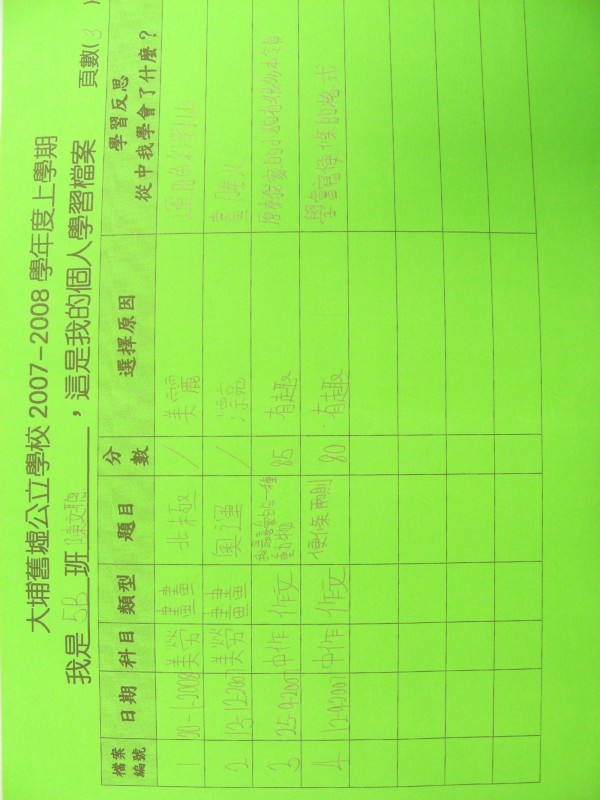 大埔舊墟公立學校 2007-2008 學年度上學期
我是 5B 班 陳文聰 ，這是我的個人學習檔案 頁數(3)
檔案編號 日期 科目 類型 題目 分數 選擇原因 學習反思 從中我學會了什麼？
1 20-1-2008 美勞 畫畫 北極 / 美麗
2 13-12-2007 美勞 畫畫 奧運 / 漂亮
3 25-9-2007 中作 作文 我最喜愛的一種動物 85 有趣
4 12-9-2007 中作 作文 便條兩則 80 有趣 學會寫便條的格式